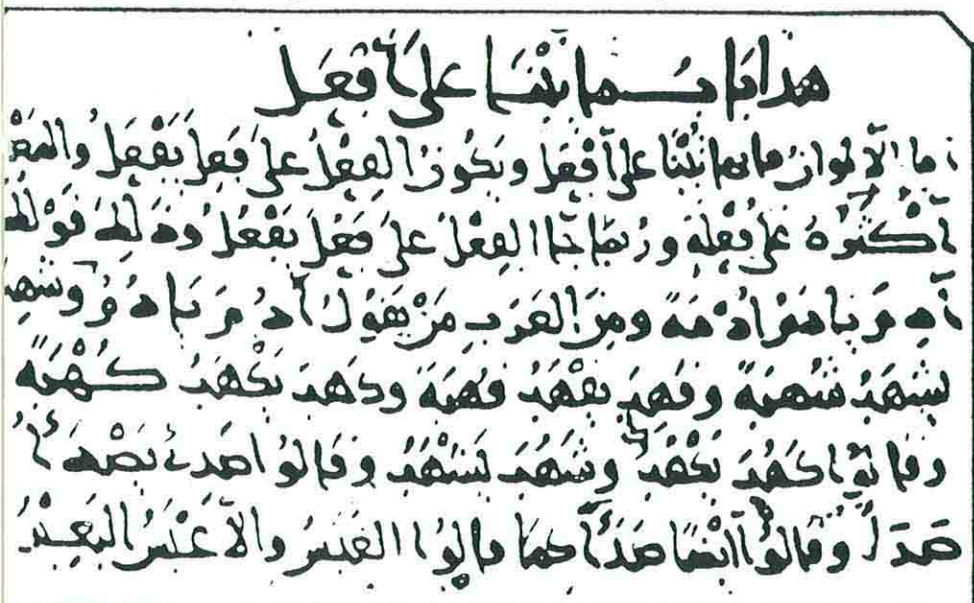 هذا باب ما يبنا على أفعل
أما الألوان فإنها تبنا على أفعل ويكون الفعل على فعل يفعل
أكثره على فعلة وربما جا الفعل على فعل يفعل وذلك قولك
أدم يأدم أدمة ومن العرب من يقول أدم يأدم وشهب
يشهب شهبة وقهب يقهب قهبة وكهب يكهب كهبة
وقالوا كهب يكهب وشهب يشهب وقالوا صدئ يصدأ
صدأ وقالوا أيضا صدأ كما قالوا الغبس والأغبس البعير